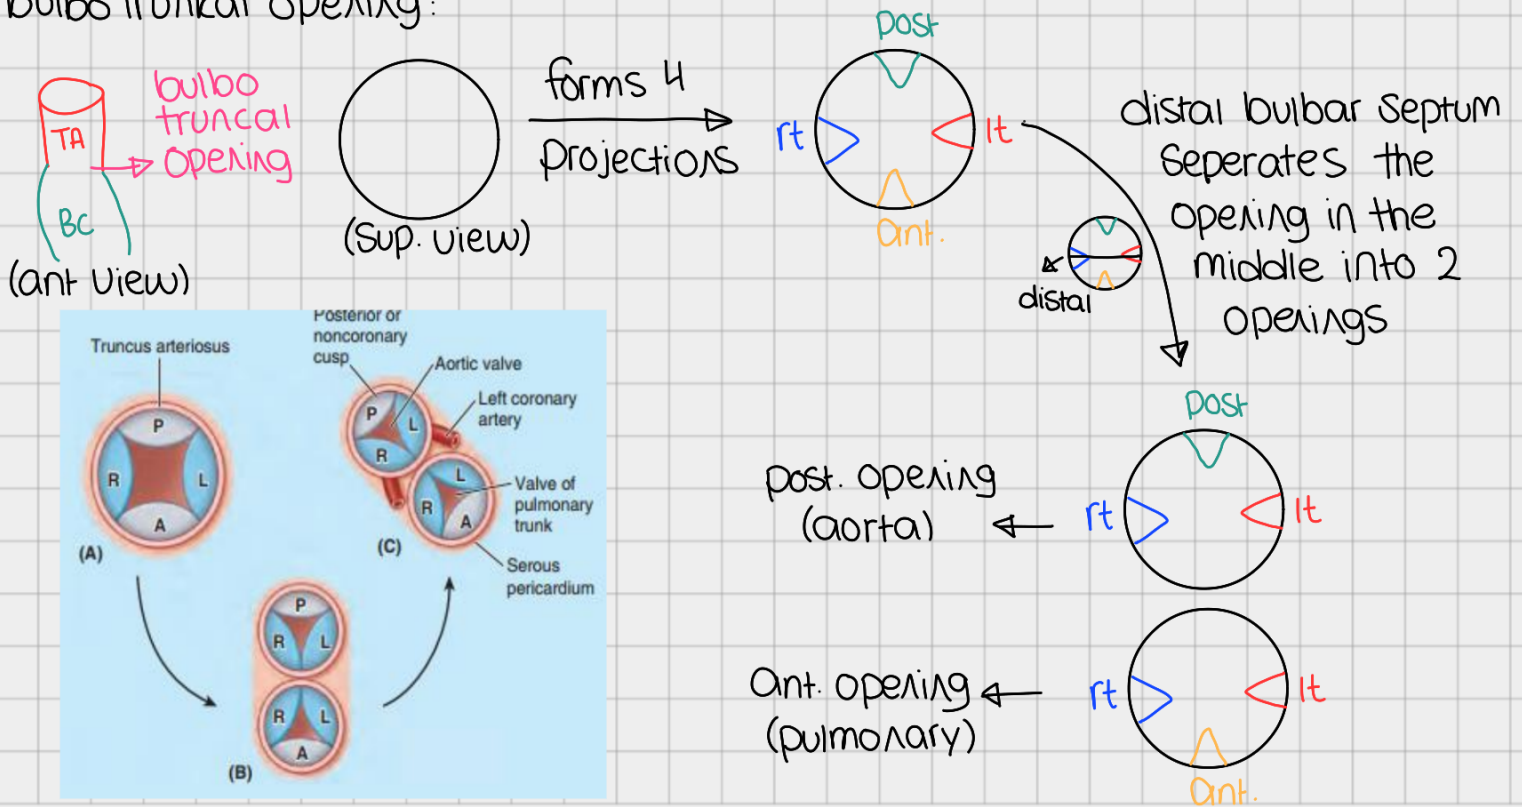 bulbo truncal opening:
TA
BC
bulbo
truncal
opening
(ant view)
(sup. view)
forms 4
projections
post
rt
lt
ant.
distal bulbar septum
seperates the
opening in the
middle into 2
openings
distal
Truncus arteriosus
P
R
L
A
(A)
Posterior or
noncoronary
cusp
Aortic valve
Left coronary
artery
P
L
R
L
R
A
Valve of
pulmonary
trunk
(C)
Serous
pericardium
P
R
L
R
L
A
(B)
post
post. opening
(aorta)
rt
lt
ant. opening
(pulmonary)
rt
lt
ant.